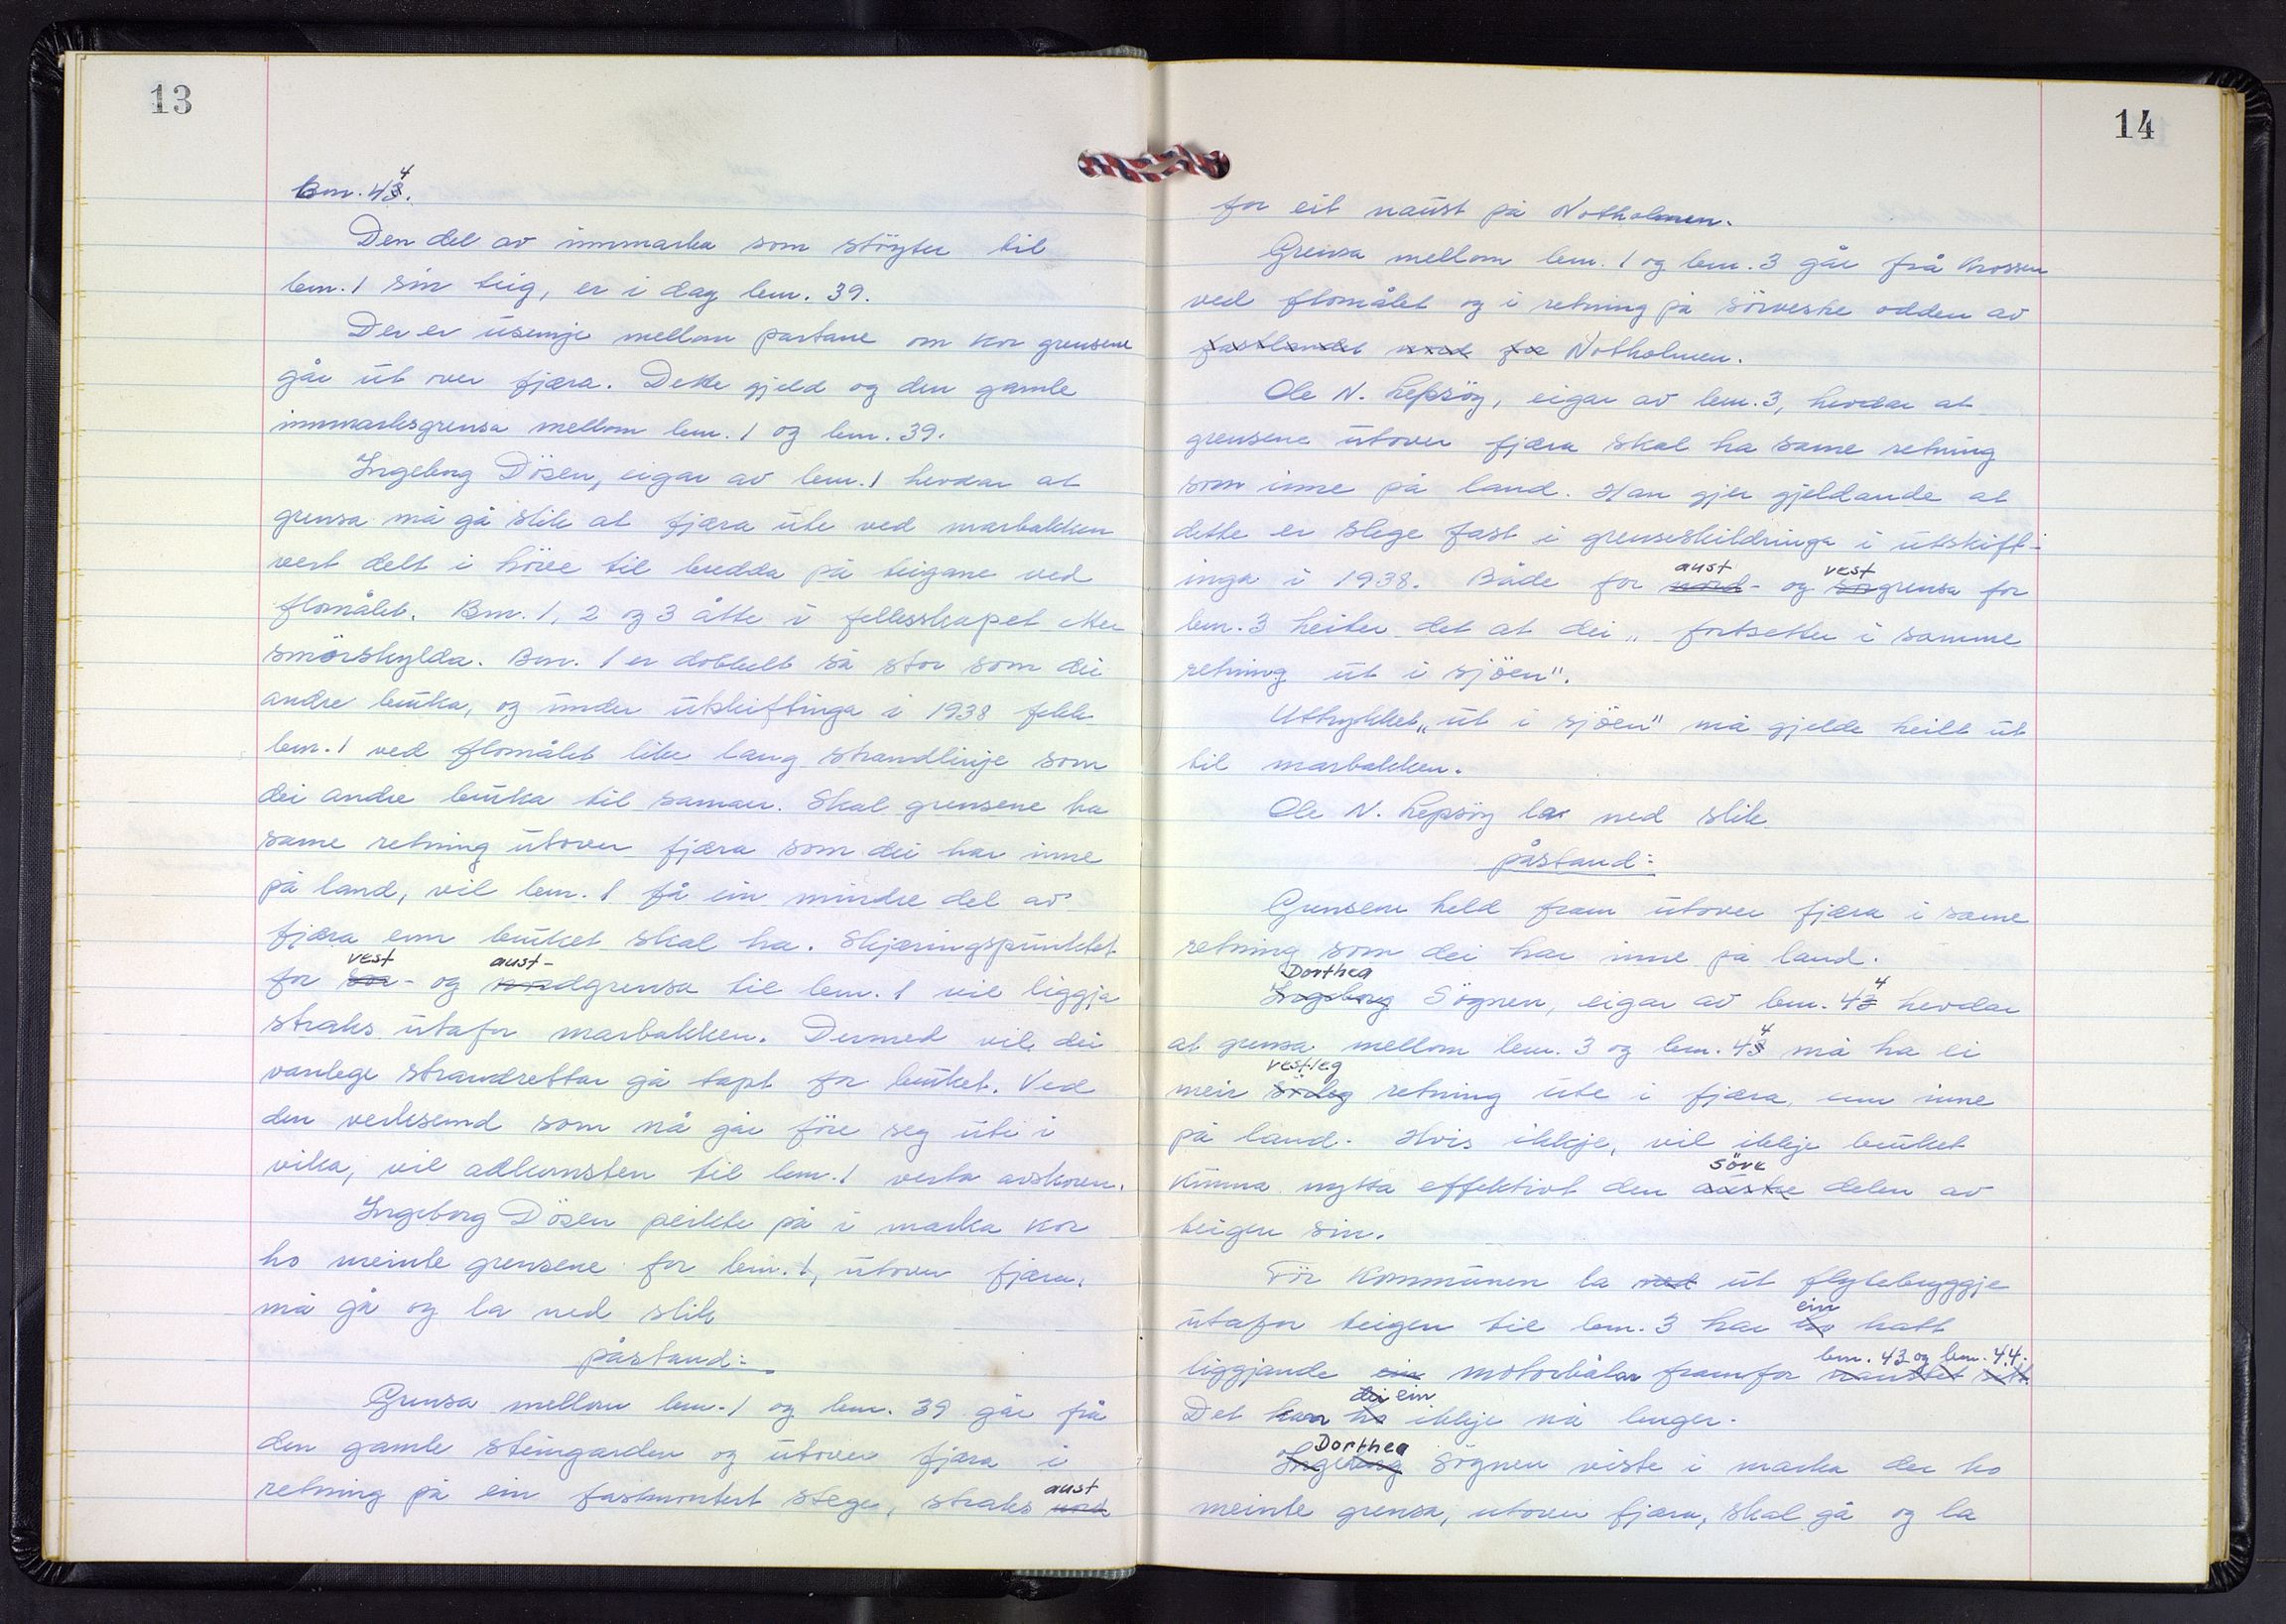 13
Bnr. 434.
Den del av innmarka som støyter til
bnr. 1 sin teig, er i dag bnr. 39.
Der er usemje mellom partane om kor grensene
går ut over fjæra. Dette gjeld og den gamle
innmarksgrensa mellom bnr. 1 og bnr. 39.
Ingeborg Dösen, eigar av bnr. 1 hevdar at
grensa må gå slik at fjæra ute ved marbakken
vert delt i höve til bredda på teigane ved
flomålet. Bnr. 1, 2 og 3 åtte i fellesskapet etter
smörskylda. Bnr. 1 er dobbelt så stor som dei
andre bruka, og under utskiftinga i 1938 fekk
bnr. 1 ved flomålet like lang strandlinje som
dei andre bruka til saman. Skal grensene ha
same retning utover fjæra som dei har inne
på land, vil bnr. 1 få ein mindre del av
fjæra enn bruket skal ha. Skjæringspunktet
vest aust-
for sør- og nordgrensa til bnr. 1 vil liggja
straks utafor marbakken. Dermed vil dei
vanlege strandrettar gå tapt for bruket. Ved
den verksemd som nå går före seg ute i
vika, vil adkomsten til bnr. 1 verta avskoren.
Ingeborg Dösen peikte på i marka kor
ho meinte grensene for bnr. 1, utover fjæra,
må gå og la ned slik
påstand:
Grensa mellom bnr. 1 og bnr. 39 går frå
den gamle steingarden og utover fjæra i
aust
retning på ein fastmontert stege, straks nord
14
for eit naust på Notholmen.
Grensa mellom bnr. 1 og bnr. 3 går frå krossen
ved flomålet og i retning på sörvestre odden av
fastlandet nord for Notholmen.
Ole N. Lepsöy, eigar av bnr. 3, hevdar at
grensene utover fjæra skal ha same retning
som inne på land. Han gjer gjeldande at
dette er slege fast i grenseskildringa i utskift-
inga i 1938. Både for nord- og sørgrensa for
aust vest
bnr. 3 heiter det at dei „fortsetter i samme
retning ut i sjöen".
Uttrykket „ut i sjöen" må gjelde heilt ut
til marbakken.
Ole N. Lepsöy la ned slik
påstand:
Grensene held fram utover fjæra i same
retning som dei har inne på land.
Dorthea
Ingeborg Sögnen, eigar av bnr. 434 hevdar
at grensa mellom bnr. 3 og bnr. 434 må ha ei
vestleg
meir sörleg retning ute i fjæra, enn inne
på land. Hvis ikkje, vil ikkje bruket
söre
kunna nytta effektivt den austre delen av
teigen sin.
För kommunen la ned ut flytebryggje
ein
utafor teigen til bnr. 3 har ho hatt
bnr. 43 og bnr. 44.
liggjande ein motorbåtar framfor naustet sitt.
dei ein
Det kan ho ikkje nå lenger.
Dorthea
Ingeborg Sögnen viste i marka der ho
meinte grensa, utover fjæra, skal gå og la